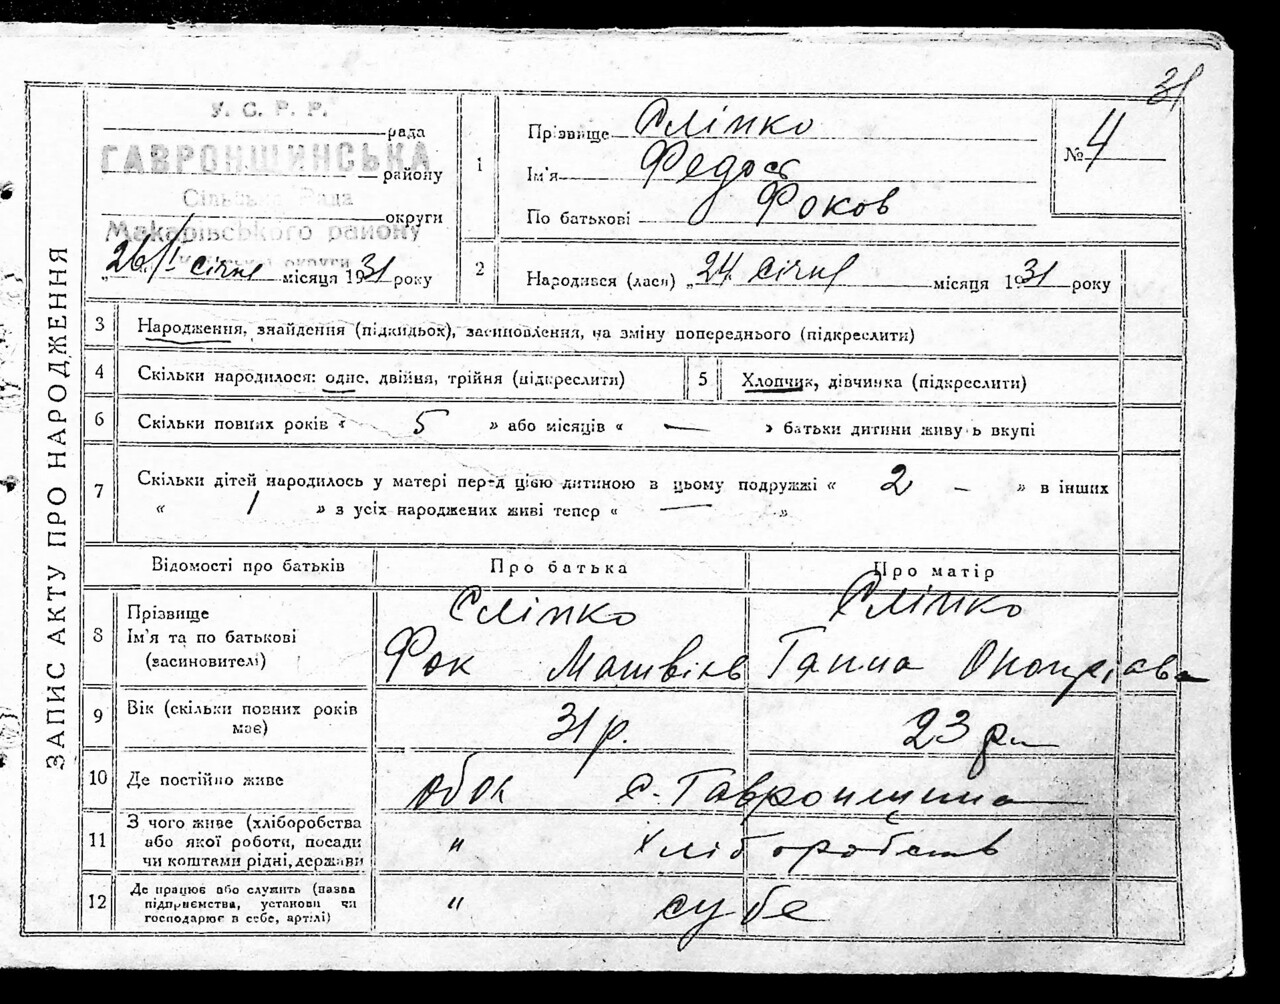 31
ЗАПИС АКТУ ПРО НАРОДЖЕННЯ
У. С. Р. Р.
рада
ГАВРОНЩИНСЬКА
району
Сільська Рада
округи
Макарівського району
округи
"26/І січня місяця 1931 року
1
Прізвище Сліпко
Ім'я Федось
По батькові Фоков
№ 4
2
Народився (лася) "24 січня місяця 1931 року
3 Народження, знайдення (підкидьох), засиновлення, на зміну попереднього (підкреслити)
4 Скільки народилося: одне, двійня, трійня (підкреслити)
5 Хлопчик, дівчинка (підкреслити)
6 Скільки повних років « 5 » або місяців « — » батьки дитини живуть вкупі
7 Скільки дітей народилось у матері перед цією дитиною в цьому подружжі « 2 – » в інших
« 1 » з усіх народжених живі тепер « — »
Відомості про батьків Про батька Про матір
8 Прізвище
Ім'я та по батькові
(засиновителі)
Сліпко
Фок Матвіїв
Сліпко
Ганна Онопрієва
9 Вік (скільки повних років
має)
31 р.
23 р.
10 Де постійно живе обок с. Гавронщина
11 З чого живе (хліборобства
або якої роботи, посади
чи коштами рідні, держави
" хліборобств
12 Де працює або служить (назва
підприємства, установи чи
господарює в себе, артілі)
" субе